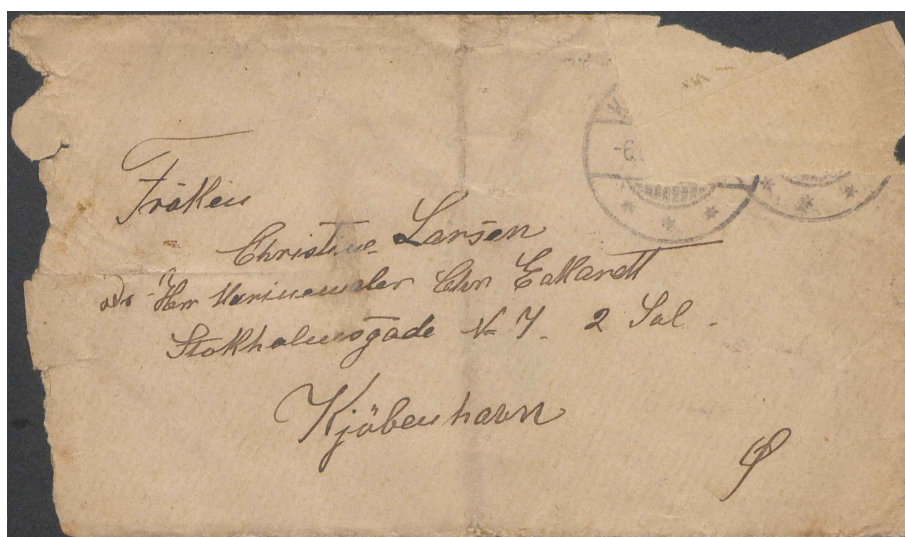 -6.
Fröken
Christine Larsen
adr Herr Marinemaler Chr Eckardt
Stokholmsgade № 7. 2 Sal.
Kjöbenhavn
Ø